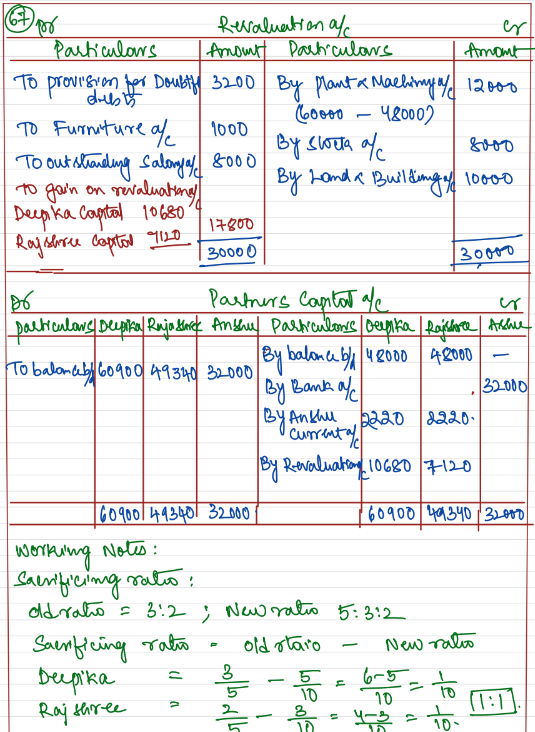 67 Dr Revaluation a/c Cr
Particulars Amount Particulars Amount
To provision for Doubtful debts 3200 By Plant & Machinery a/c 12000
(60000 - 48000)
To Furniture a/c 1000 By Stock a/c 8000
To outstanding Salary a/c 8000 By Land & Building a/c 10000
To gain on revaluation a/c
Deepika Capital 10680
Rajshree Capital 7120 17800
30000 30000
Dr Partners Capital a/c Cr
particulars Deepika Rajashree Anshu Particulars Deepika Rajshree Anshu
To balance b/d 60900 49340 32000 By balance b/d 48000 48000 —
By Bank a/c 32000
By Anshu current a/c 2220 2220
By Revaluation a/c 10680 7120
60900 49340 32000 60900 49340 32000
Working Notes:
Sacrificing ratio:
old ratio = 3:2 ; New ratio 5:3:2
Sacrificing ratio = old ratio - New ratio
Deepika = 3/5 - 5/10 = 6-5/10 = 1/10
Rajshree = 2/5 - 3/10 = 4-3/10 = 1/10. 1:1